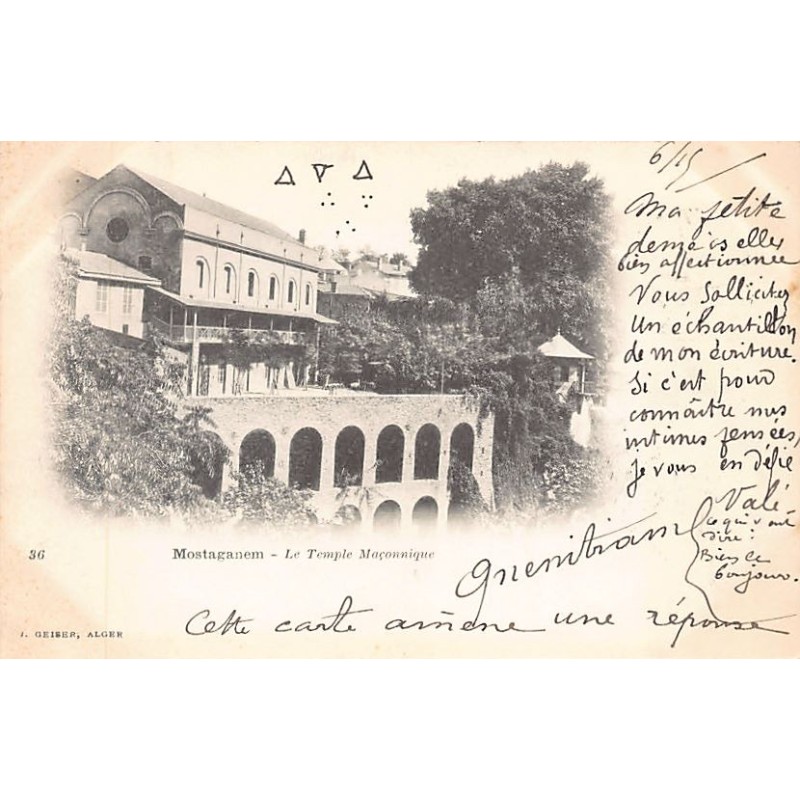 6/15
Ma petite
demoiselle
bien affectionnée
Vous sollicitez
un échantillon
de mon écriture.
Si c'est pour
connaître mes
intimes pensées,
je vous en défie
Valé
ce qui veut
dire:
Bien le
bonjour.
36
Mostaganem - Le Temple Maçonnique
J. GEISER, ALGER
Cette carte amène une réponse